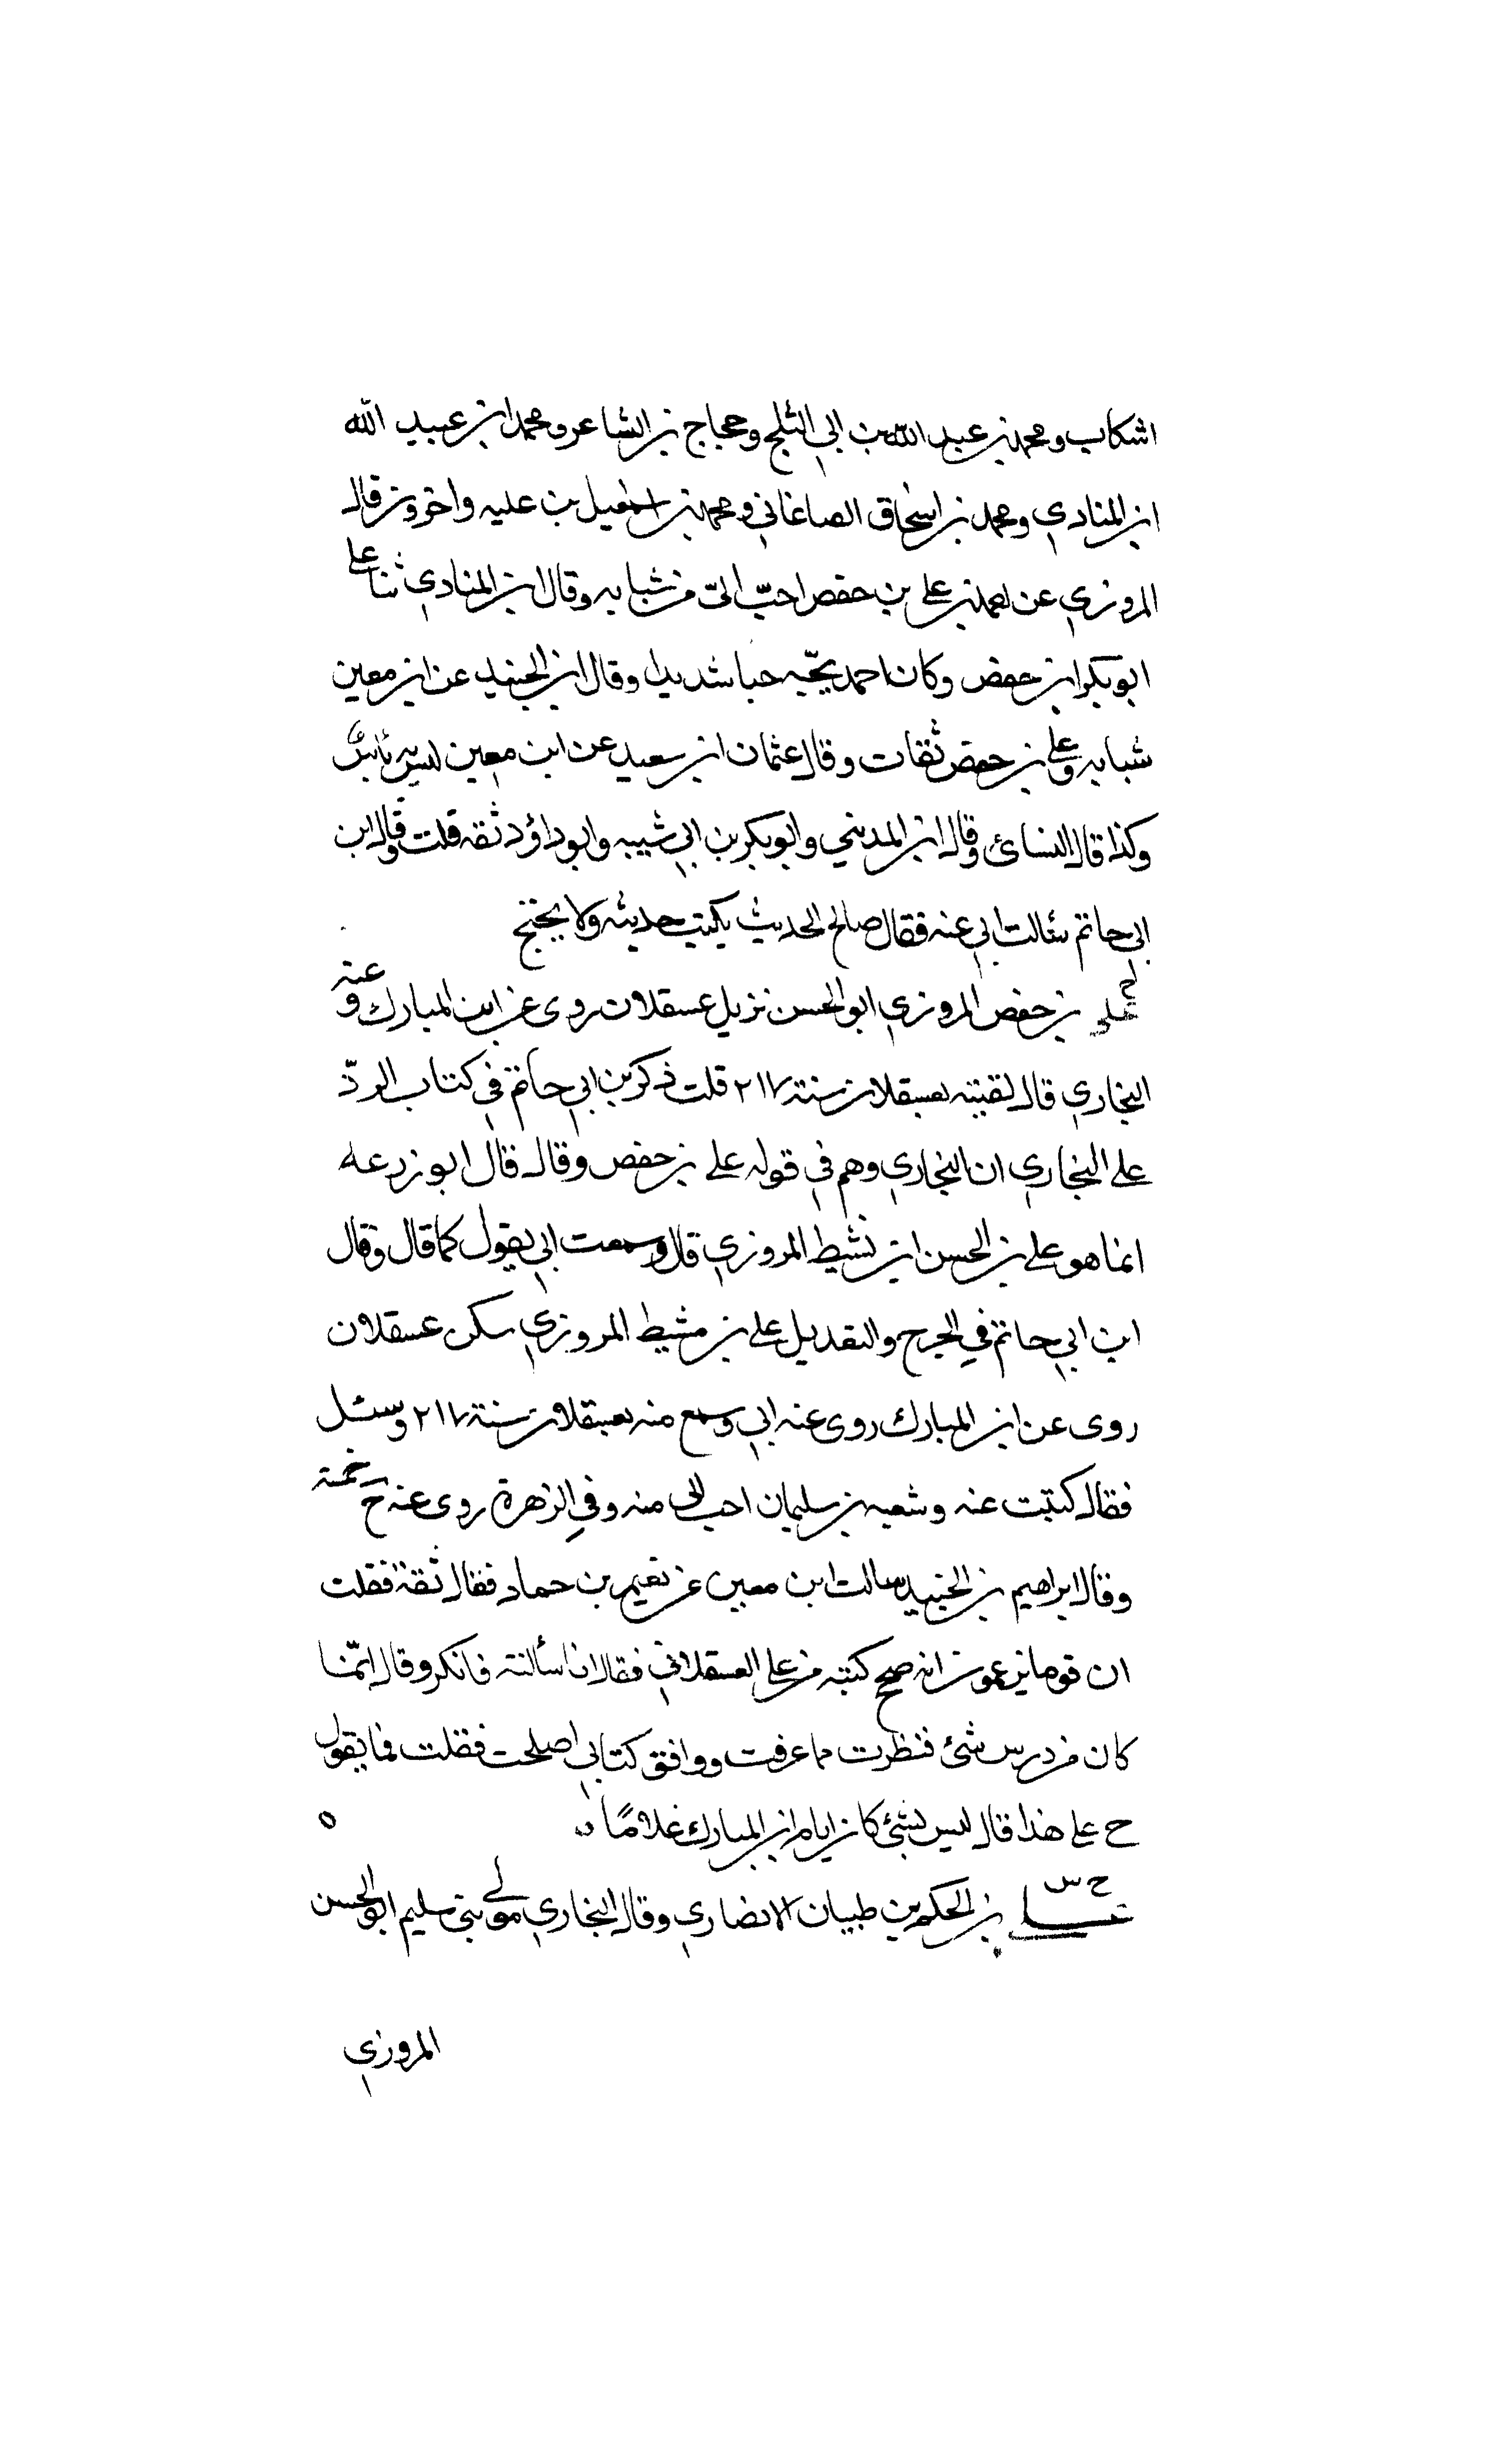 اشكاب ومحمد بن عبد الله بن ابي الثلج وحجاج بن الشاعر ومحمد ابن عبيد الله
ابن المنادي ومحمد بن اسحاق الصاغاني ومحمد بن اسمعيل بن عليه واخرون قال
المروزي عن احمد بن علي بن حفص احبّ اليّ من شبابه وقال ابن المنادي ثنا علي
ابو بكر ابن حفص وكان احمد يحبّه حبا شديدا وقال ابن الجنيد عن ابن معين
شبابه وعلي بن حفص ثقات وقال عثمان ابن سعيد عن ابن معين ليس به بأس
وكذا قال النسائ وقال ابن المديني وابو بكر بن ابي شيبه وابو داؤد ثقه قلت وقال ابن
ابي حاتم سالت ابي عنه فقال صالح الحديث يكتب حديثه ولا يحتج
خ علي بن حفص المروزي ابو الحسن نزيل عسقلان روى عن ابن المبارك وعنه
البخاري قال لقيته بعسقلان سنة ٢١٧ قلت ذكر بن ابي حاتم في كتاب الردّ
على البخاري ان البخاري وهم في قوله علي بن حفص وقال قال ابو زرعه
انما هو علي بن الحسن ابن نشيط المروزي قال وسمعت ابي يقول كما قال وقال
ابن ابي حاتم في الجرح والتعديل علي بن مشيط المروزي سكن عسقلان
روى عن ابن المبارك روى عنه ابي وسمع منه بعسقلان سنة ٢١٧ وسئل
فقال كتبت عنه وشعبه بن سليمان احب الي منه وفي الزهرة روى عنه خ خمسة
وقال ابراهيم بن الجنيد سالت ابن معين عن نعيم بن حماد فقال ثقة فقلت
ان قوما يزعمون انه صحح كتبه من علي العسقلاني فقال انا سألته فانكر وقال انّما
كان من درس شئ فنظرت ما عرفت ووافق كتابي اصلحت فقلت فما يقول
ح علي هذا قال ليس بشئ كان ايام ابن المبارك غلامًا ه
خ س علي بن الحكم بن طبيان الانصاري وقال البخاري مولى بني سليم ابو الحسن
المروزي